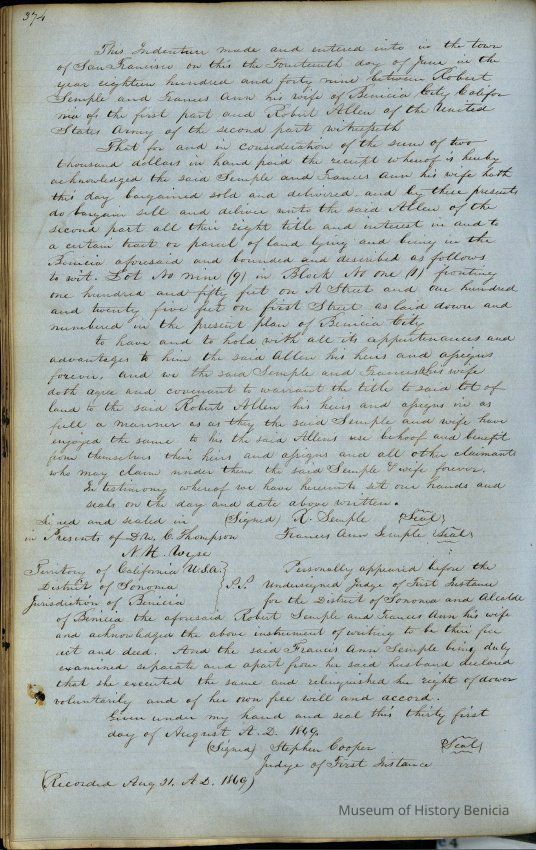 374
This Indenture made and entered into in the town
of San Francisco on this the Fourteenth day of June in the
year eighteen hundred and forty nine between Robert
Semple and Frances Ann his wife of Benicia City Califor
nia of the first part and Robert Allen of the United
States Army of the second part witnesseth
That for and in consideration of the sum of two
thousand dollars in hand paid the receipt whereof is hereby
acknowledged the said Semple and Frances Ann his wife hath
this day bargained sold and delivered and by these presents
do bargain sell and deliver unto the said Allen of the
second part all their right title and interest in and to
a certain tract or parcel of land lying and being in the
Benicia aforesaid and bounded and described as follows
to wit. Lot No nine (9) in Block No one (1) fronting
one hundred and fifty feet on A Street and one hundred
and twenty five feet on First Street as laid down and
numbered in the present plan of Benicia City
to have and to hold with all its appurtenances and
advantages to him the said Allen his heirs and assigns
forever, and we the said Semple and Frances A his wife
doth agree and covenant to warrant the title to said lot of
land to the said Robert Allen his heirs and assigns in as
full a manner as as they the said Semple and wife have
enjoyed the same to his the said Allens use behoof and benefit
from themselves their heirs and assigns and all other claimants
who may claim under them the said Semple & wife forever.
In testimony whereof we have hereunto set our hands and
seals on the day and date above written.
Signed and sealed in (Signed) R. Semple (Seal)
in Presents of D No. C. Thompson Frances Ann Semple (Seal)
N. H. Wyse
Territory of California U.S.A. } Personally appeared before the
District of Sonoma } S.S. Undersigned Judge of First Instance
Jurisdiction of Benicia for the District of Sonoma and Alcalde
of Benicia the aforesaid Robert Semple and Frances Ann his wife
and acknowledged the above instrument of writing to be their free
act and deed. And the said Frances Ann Semple being duly
examined separate and apart from her said husband declared
that she executed the same and relinquished her right of dower
voluntarily and of her own free will and accord.
Given under my hand and seal this thirty first
day of August A. D. 1849.
(Signed) Stephen Cooper (Seal)
Judge of First Instance
(Recorded Aug 31. A.D. 1849)
Museum of History Benicia